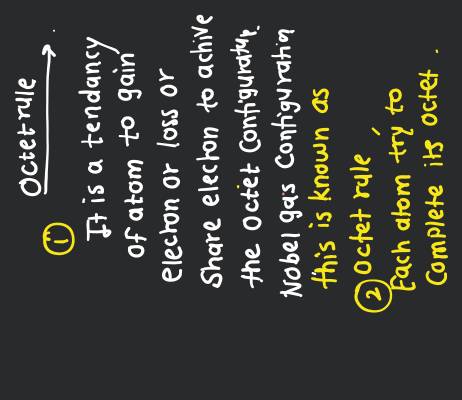 Octet rule
① It is a tendancy
of atom to gain
electon or loss or
Share electon to achive
the octet Configuration
Nobel gas Configuration
this is known as
Octet rule
② Each atom try to
Complete its octet.